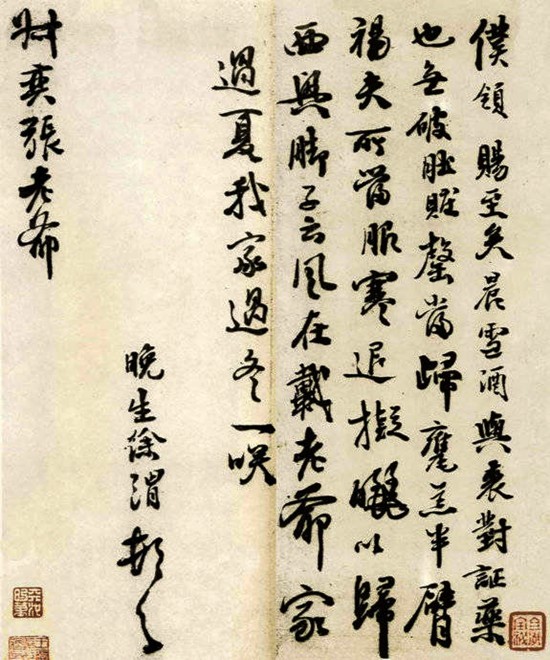 僕領賜至矣晨雪酒與裘對証藥
也無破肚贓罄當歸麾羔半臂
褐夫所常服寒退擬曬以歸
西興脚子云風在戴老爺家
過夏我家過冬一咲
晚生徐渭頓首
奕張老爺